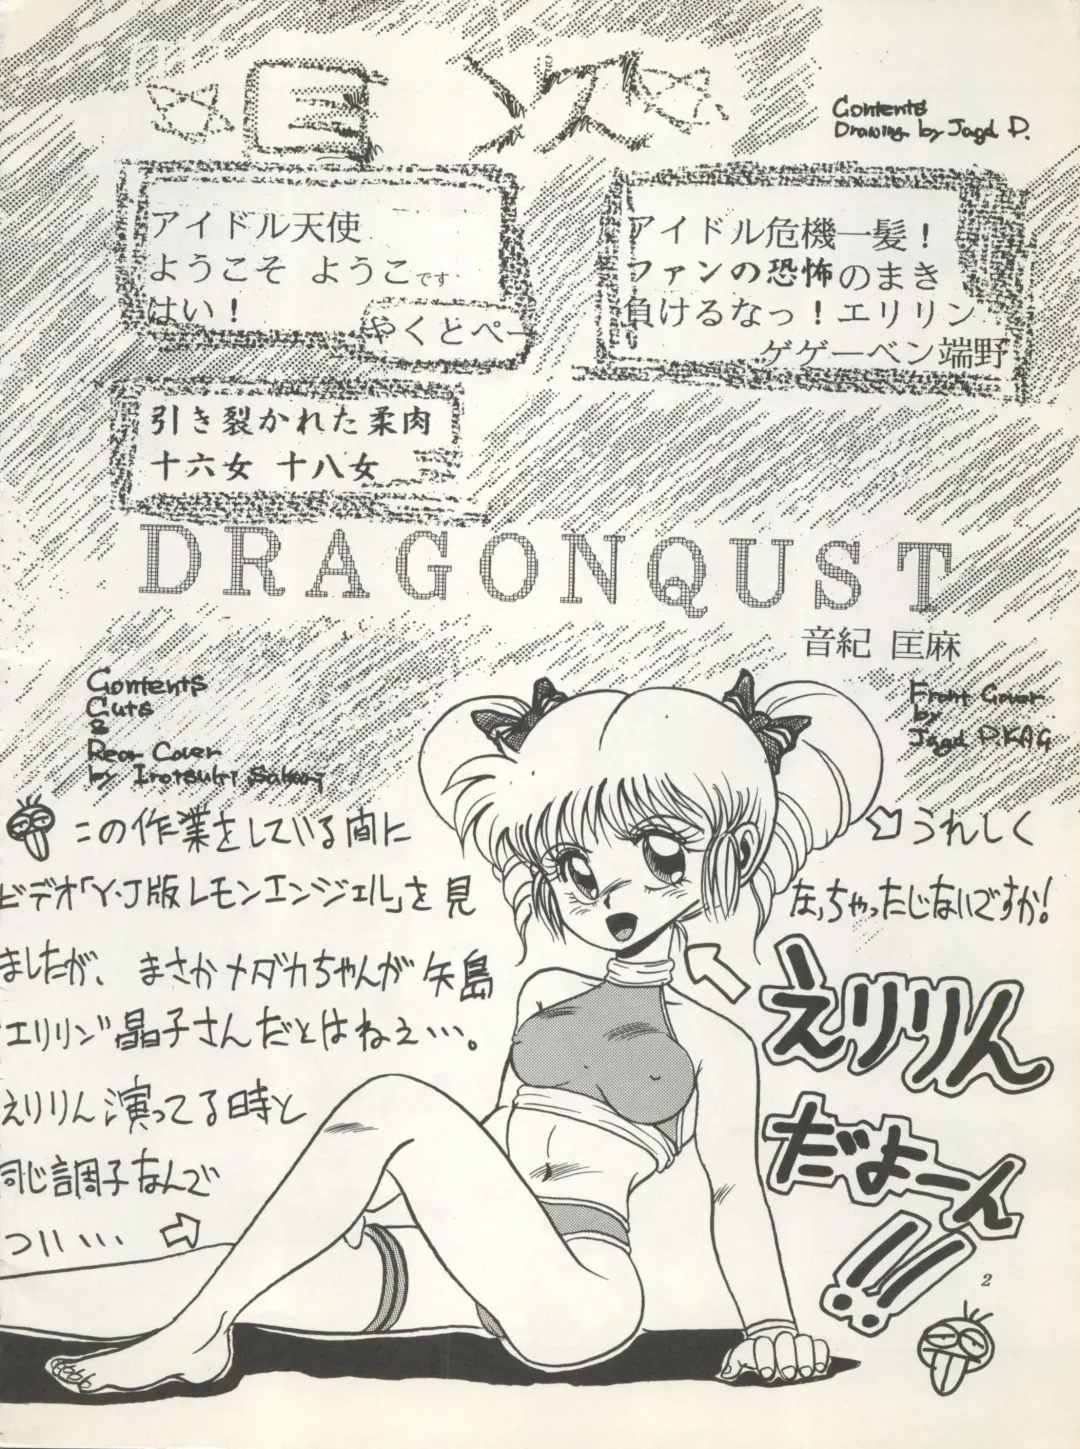 目次
Contents
Drawing by Jagd P.
アイドル天使
ようこそ ようこです
はい！
やくとぺー
アイドル危機一髪！
ファンの恐怖のまき
負けるなっ！エリリン
ゲゲーベン端野
引き裂かれた柔肉
十六女 十八女
DRAGONQUST
音紀 匡麻
Contents
Cuts
&
Rear Cover
by Irotsuki
Front Cover
by
Jagd P.KAG
この作業をしている間に
ビデオ「Y・J版レモンエンジェル」を見
ましたが、まさかメダカちゃんが矢島
"エリリン"晶子さんだとはねぇ…。
えりりん演ってる時と
同じ調子なんで
つい…
うれしく
なっちゃったじないですか！
えりりん
だよーん
!!
2